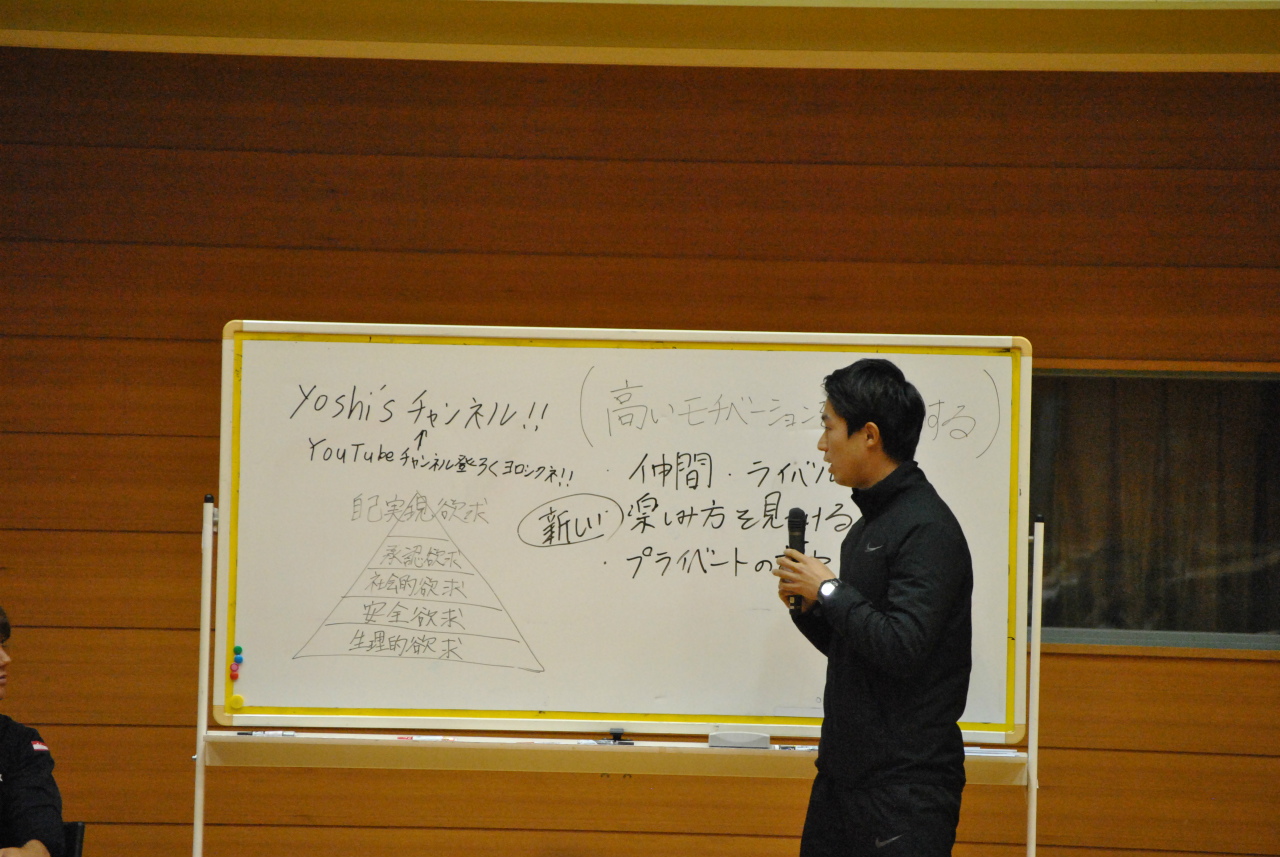 Yoshi's チャンネル!!
↑
YouTubeチャンネル登ろくヨロシクネ!!
自己実現欲求
承認欲求
社会的欲求
安全欲求
生理的欲求
(高いモチベーション する)
・仲間・ライバル
新しい 楽しみ方を見 ける
・プライベートの